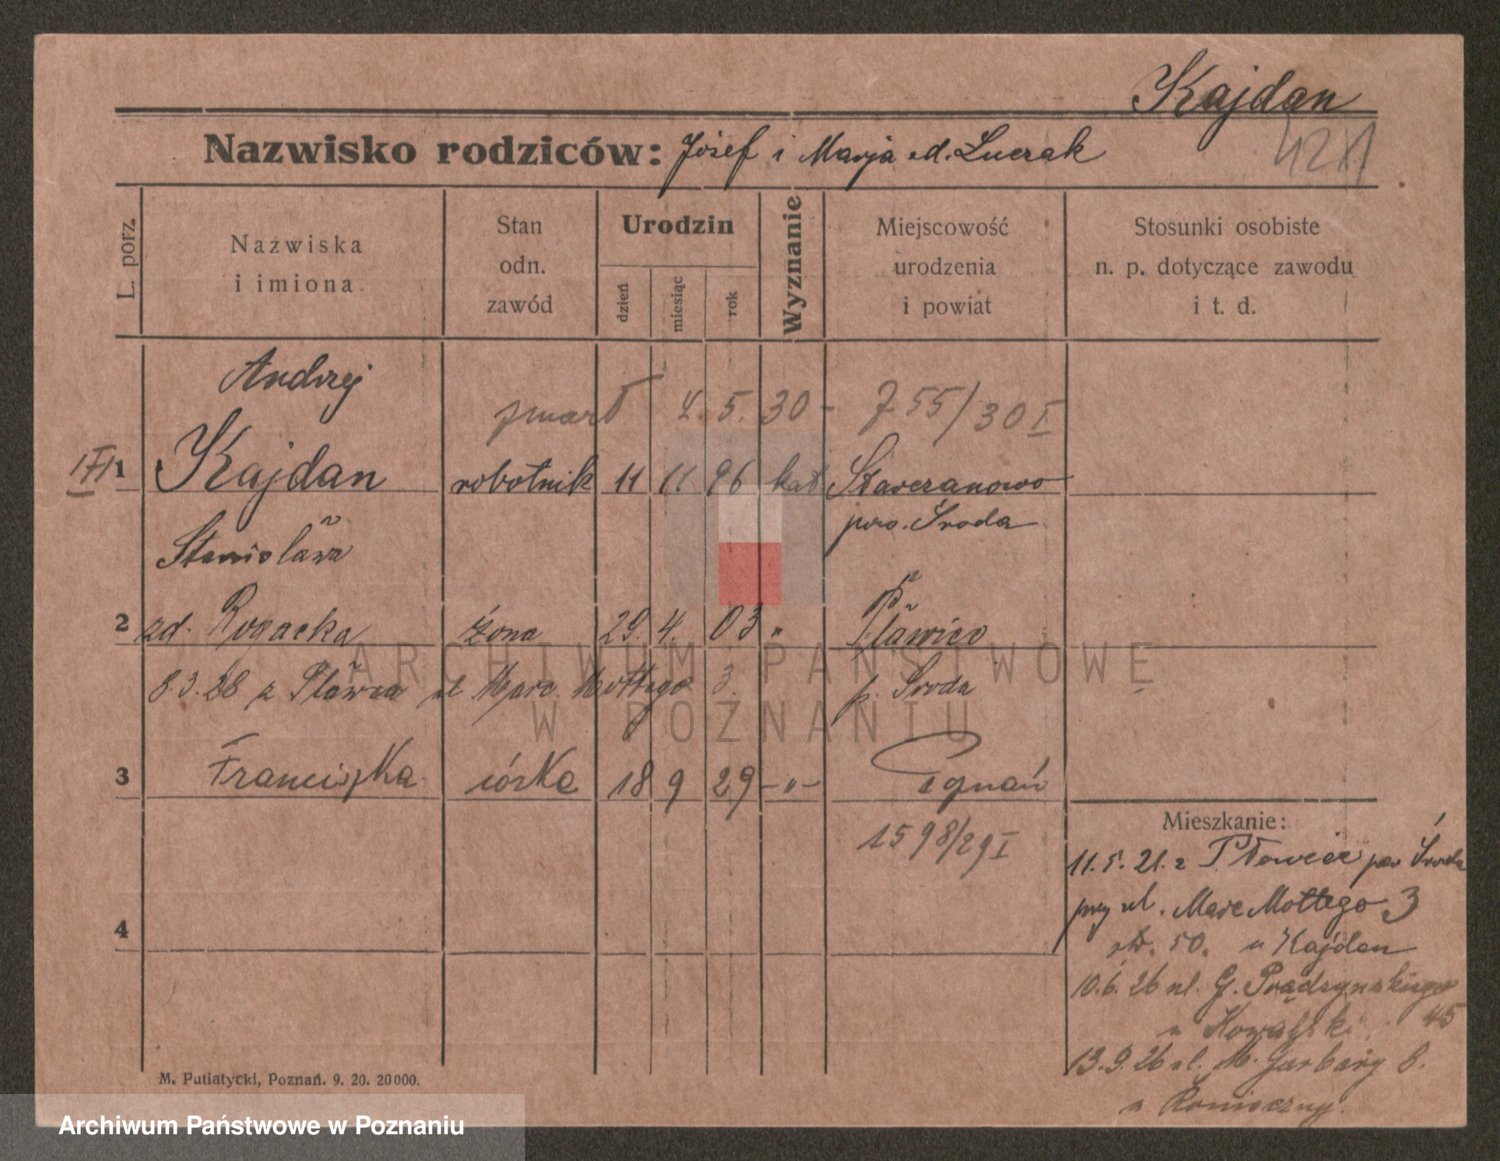 Kajdan
Nazwisko rodziców: Józef i Marja zd. Luczak
L. porz.
Nazwiska
i imiona
Stan
odn.
zawód
Urodzin
dzień
miesiąc
rok
Wyznanie
Miejscowość
urodzenia
i powiat
Stosunki osobiste
n. p. dotyczące zawodu
i t. d.
Andrzej
zmarł 5. 30 - 755/30 I
1 Kajdan robotnik 11 11 96 kat
pow. Środa
Stanisława
2 zd. Rogacka żona 29 4. 03 „
8.3.28 z ul Marc. Mottego 3. p. Środa
3 Franciszka córka 18 9 29 -„- Poznań
1598/29 I
4
Mieszkanie:
11.5.21. z pow Środa
przy ul. Marc Mottego 3
50. u Kajdan
10.6.26 ul. G. Prądzynskiego
u Kowalski 45
13.9.26 ul. M. Garbary 8.
u
M. Putiatycki, Poznań. 9. 20. 20000.
ARCHIWUM PAŃSTWOWE
W POZNANIU
Archiwum Państwowe w Poznaniu